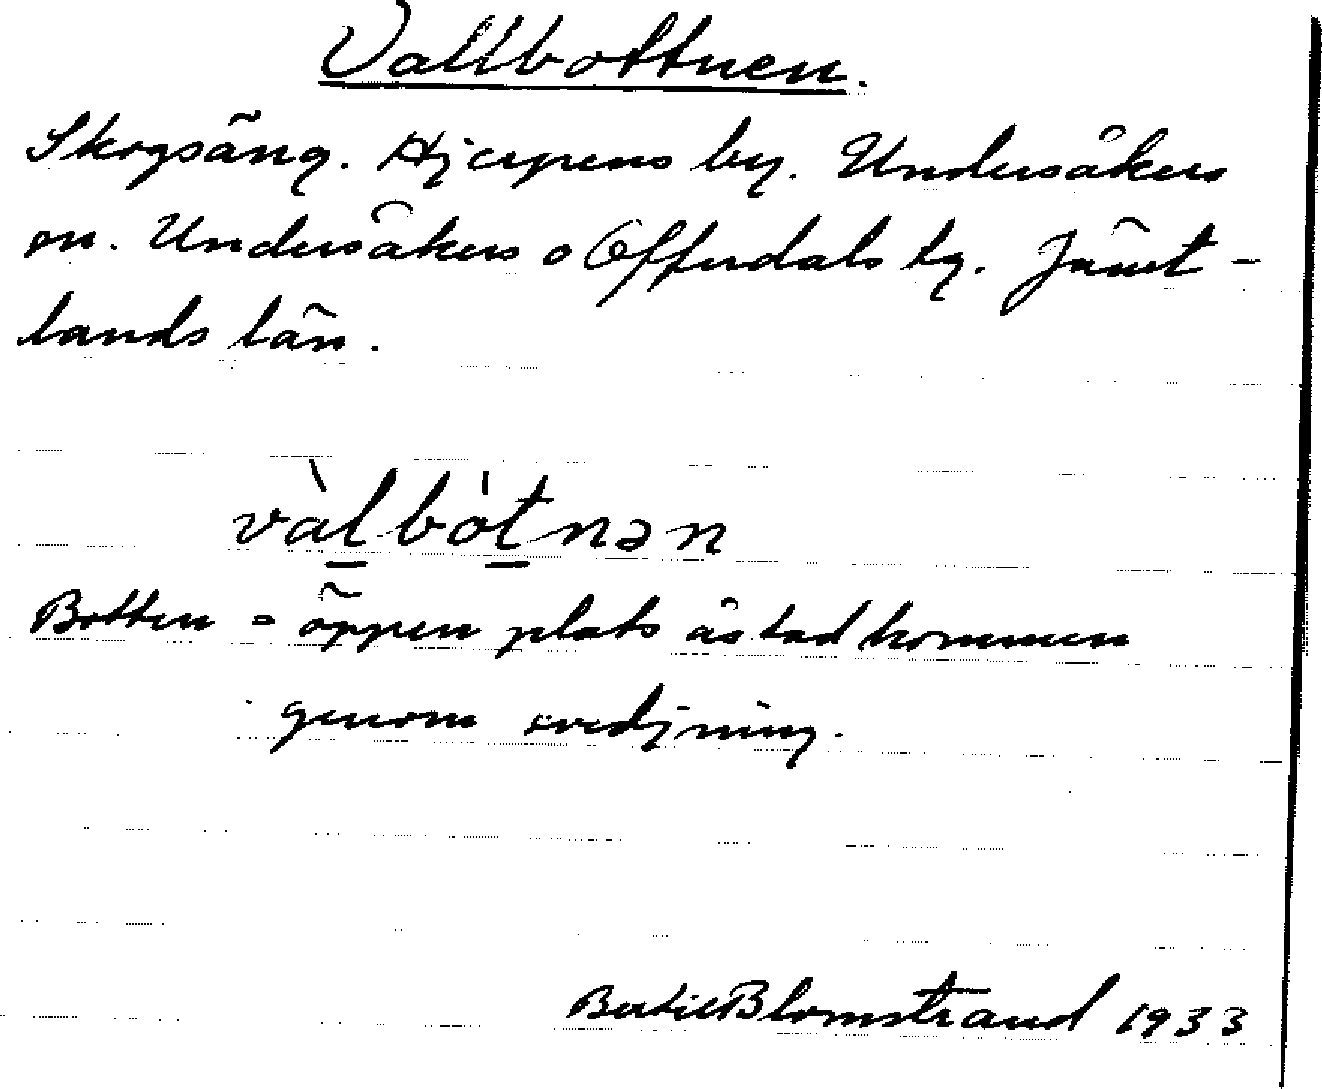 Vallbottnen.
Skogsäng. Hjerpens by. Undersåkers
sn. Undersåkers o Offerdals tg. Jämt-
lands län.
vàl̲bót̲nən
Botten = öppen plats åstadkommen
genom svedjning.
Bertil Blomstrand 1933